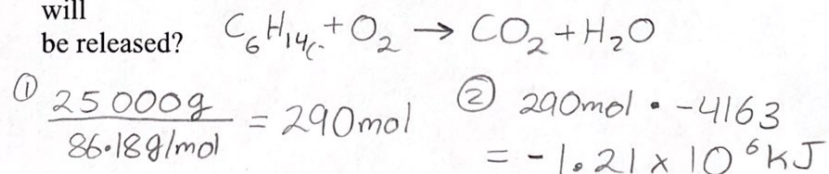 will
be released? C₆H₁₄ + O₂ → CO₂ + H₂O
① 25 000g / 86.18g/mol = 290mol
② 290mol • -4163
= -1.21 x 10⁶ kJ